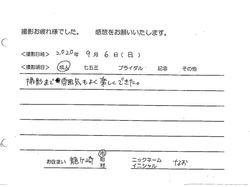 撮影お疲れ様でした。 感想をお願いいたします。
＜撮影日時＞ 2020年 9月 6日（日）
＜撮影項目＞ 成人 七五三 ブライダル 記念 その他
撮影まで雰囲気もよく楽しくできた。
市
お住まい 龍ヶ崎 町 ニックネーム なお
村 イニシャル